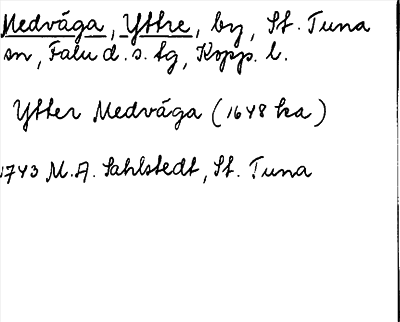 Medvåga, Yttre, by, St. Tuna
sn, Falu d. s. tg, Kopp. l.
Ytter Medvåga (1648 ka)
1743 M.A. Sahlstedt, St. Tuna